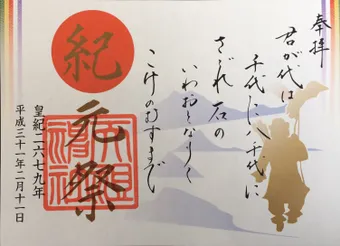 奉拝
君が代は
千代に八千代に
さざれ石の
いわおとなりて
こけのむすまで
紀元祭
皇紀二六七九年
平成三十一年二月十一日